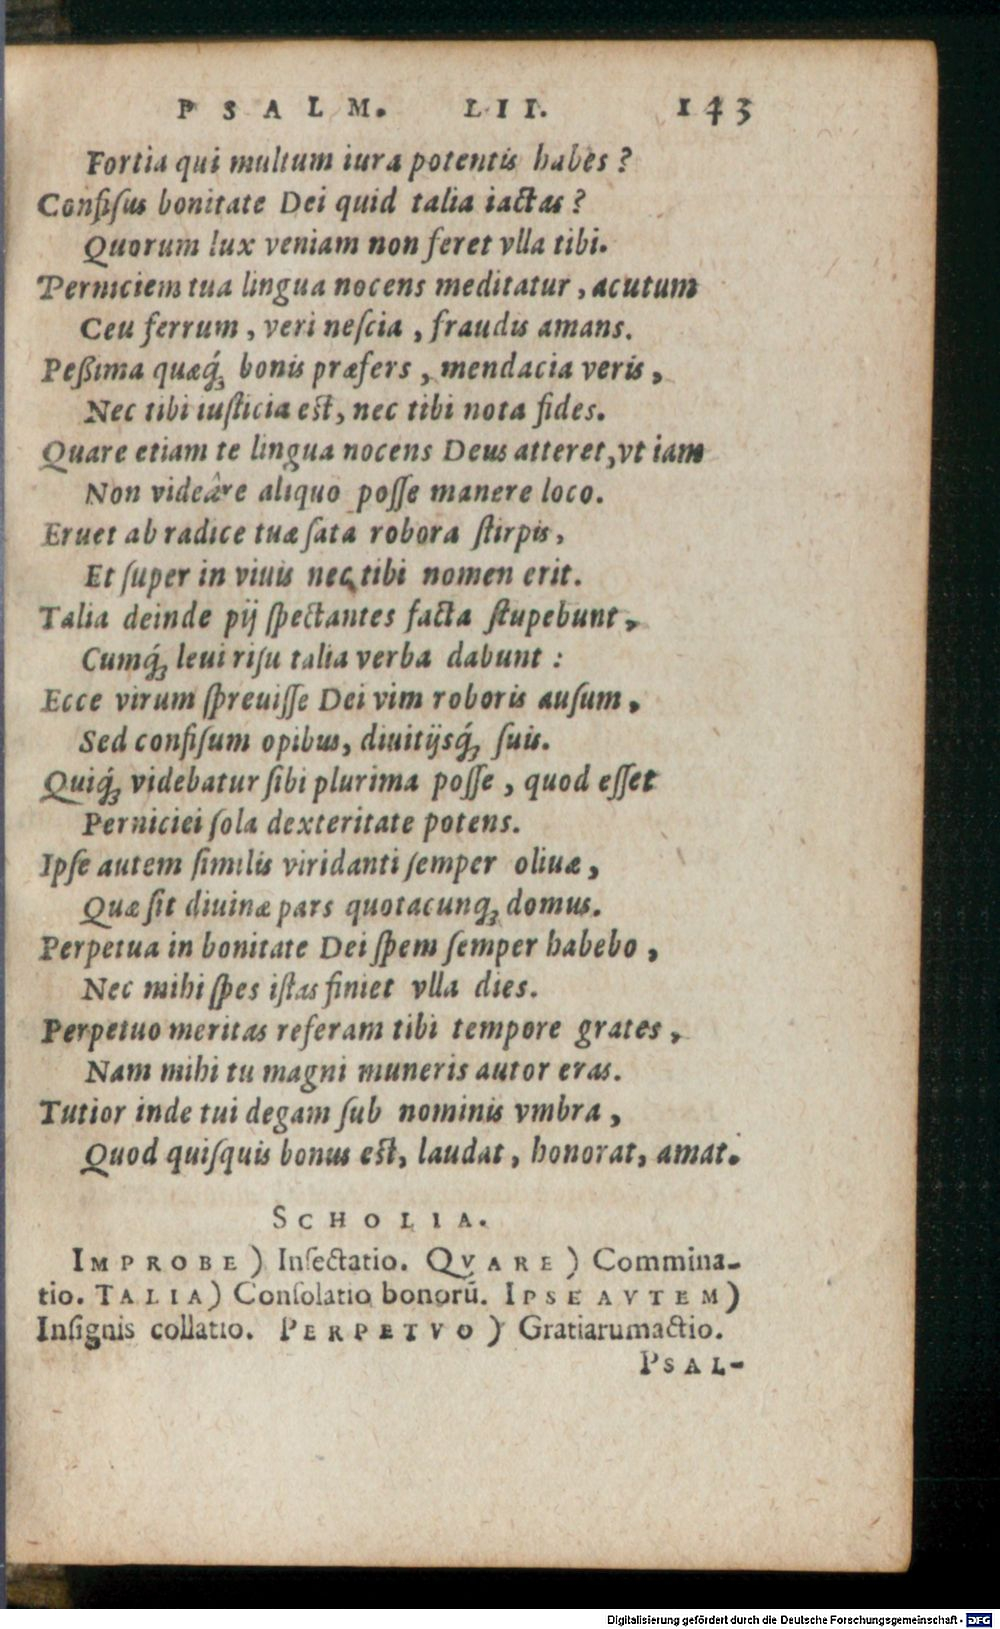 PSALM. LII. 143
Fortia qui multum iura potentis habes?
Confiſus bonitate Dei quid talia iactas?
Quorum lux veniam non feret vlla tibi.
Perniciem tua lingua nocens meditatur, acutum
Ceu ferrum, veri neſcia, fraudis amans.
Peßima quæq́ꝫ bonis præfers, mendacia veris,
Nec tibi iuſticia eſt, nec tibi nota fides.
Quare etiam te lingua nocens Deus atteret, vt iam
Non videâre aliquo poſſe manere loco.
Eruet ab radice tuæ ſata robora ſtirpis,
Et ſuper in viuis nec tibi nomen erit.
Talia deinde pij ſpectantes facta ſtupebunt,
Cumq́ꝫ leui riſu talia verba dabunt:
Ecce virum ſpreuiſſe Dei vim roboris auſum,
Sed confiſum opibus, diuitijsq́ꝫ ſuis.
Quiq́ꝫ videbatur ſibi plurima poſſe, quod eſſet
Perniciei ſola dexteritate potens.
Ipſe autem ſimilis viridanti ſemper oliuæ,
Quæ ſit diuinæ pars quotacunqꝫ domus.
Perpetua in bonitate Dei ſpem ſemper habebo,
Nec mihi ſpes iſtas finiet vlla dies.
Perpetuo meritas referam tibi tempore grates,
Nam mihi tu magni muneris autor eras.
Tutior inde tui degam ſub nominis vmbra,
Quod quiſquis bonus eſt, laudat, honorat, amat.
SCHOLIA.
IMPROBE) Inſectatio. QVARE) Commina-
tio. TALIA) Conſolatio bonorũ. IPSE AVTEM)
Inſignis collatio. PERPETVO) Gratiarumactio.
PSAL-
Digitalisierung gefördert durch die Deutsche Forschungsgemeinschaft - DFG